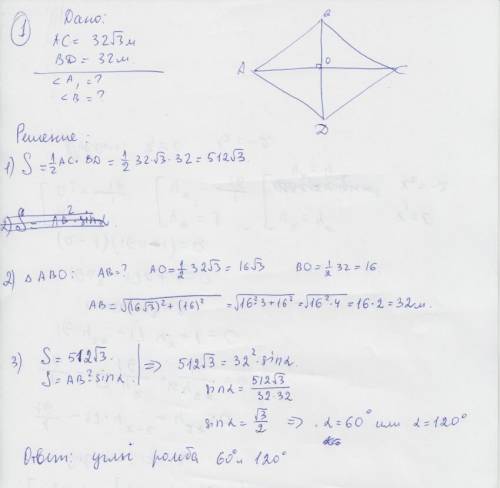 1
Дано:
AC = 32√3 м
BD = 32 м.
∠A, = ?
∠B = ?
B
A
O
C
D
Решение:
1) S = 1/2 AC · BD = 1/2 32·√3 · 32 = 512√3
2) △ABO: AB = ? AO = 1/2 32√3 = 16√3 BO = 1/2 32 = 16
AB = √((16√3)² + (16)²) = √(16²·3 + 16²) = √(16²·4) = 16·2 = 32 м.
3) S = 512√3.
S = AB² · sinα | ⟹ 512√3 = 32² · sinα.
sinα = 512√3/32·32
sinα = √3/2 ⟹ α = 60° или α = 120°
Ответ: углы ромба 60° и 120°